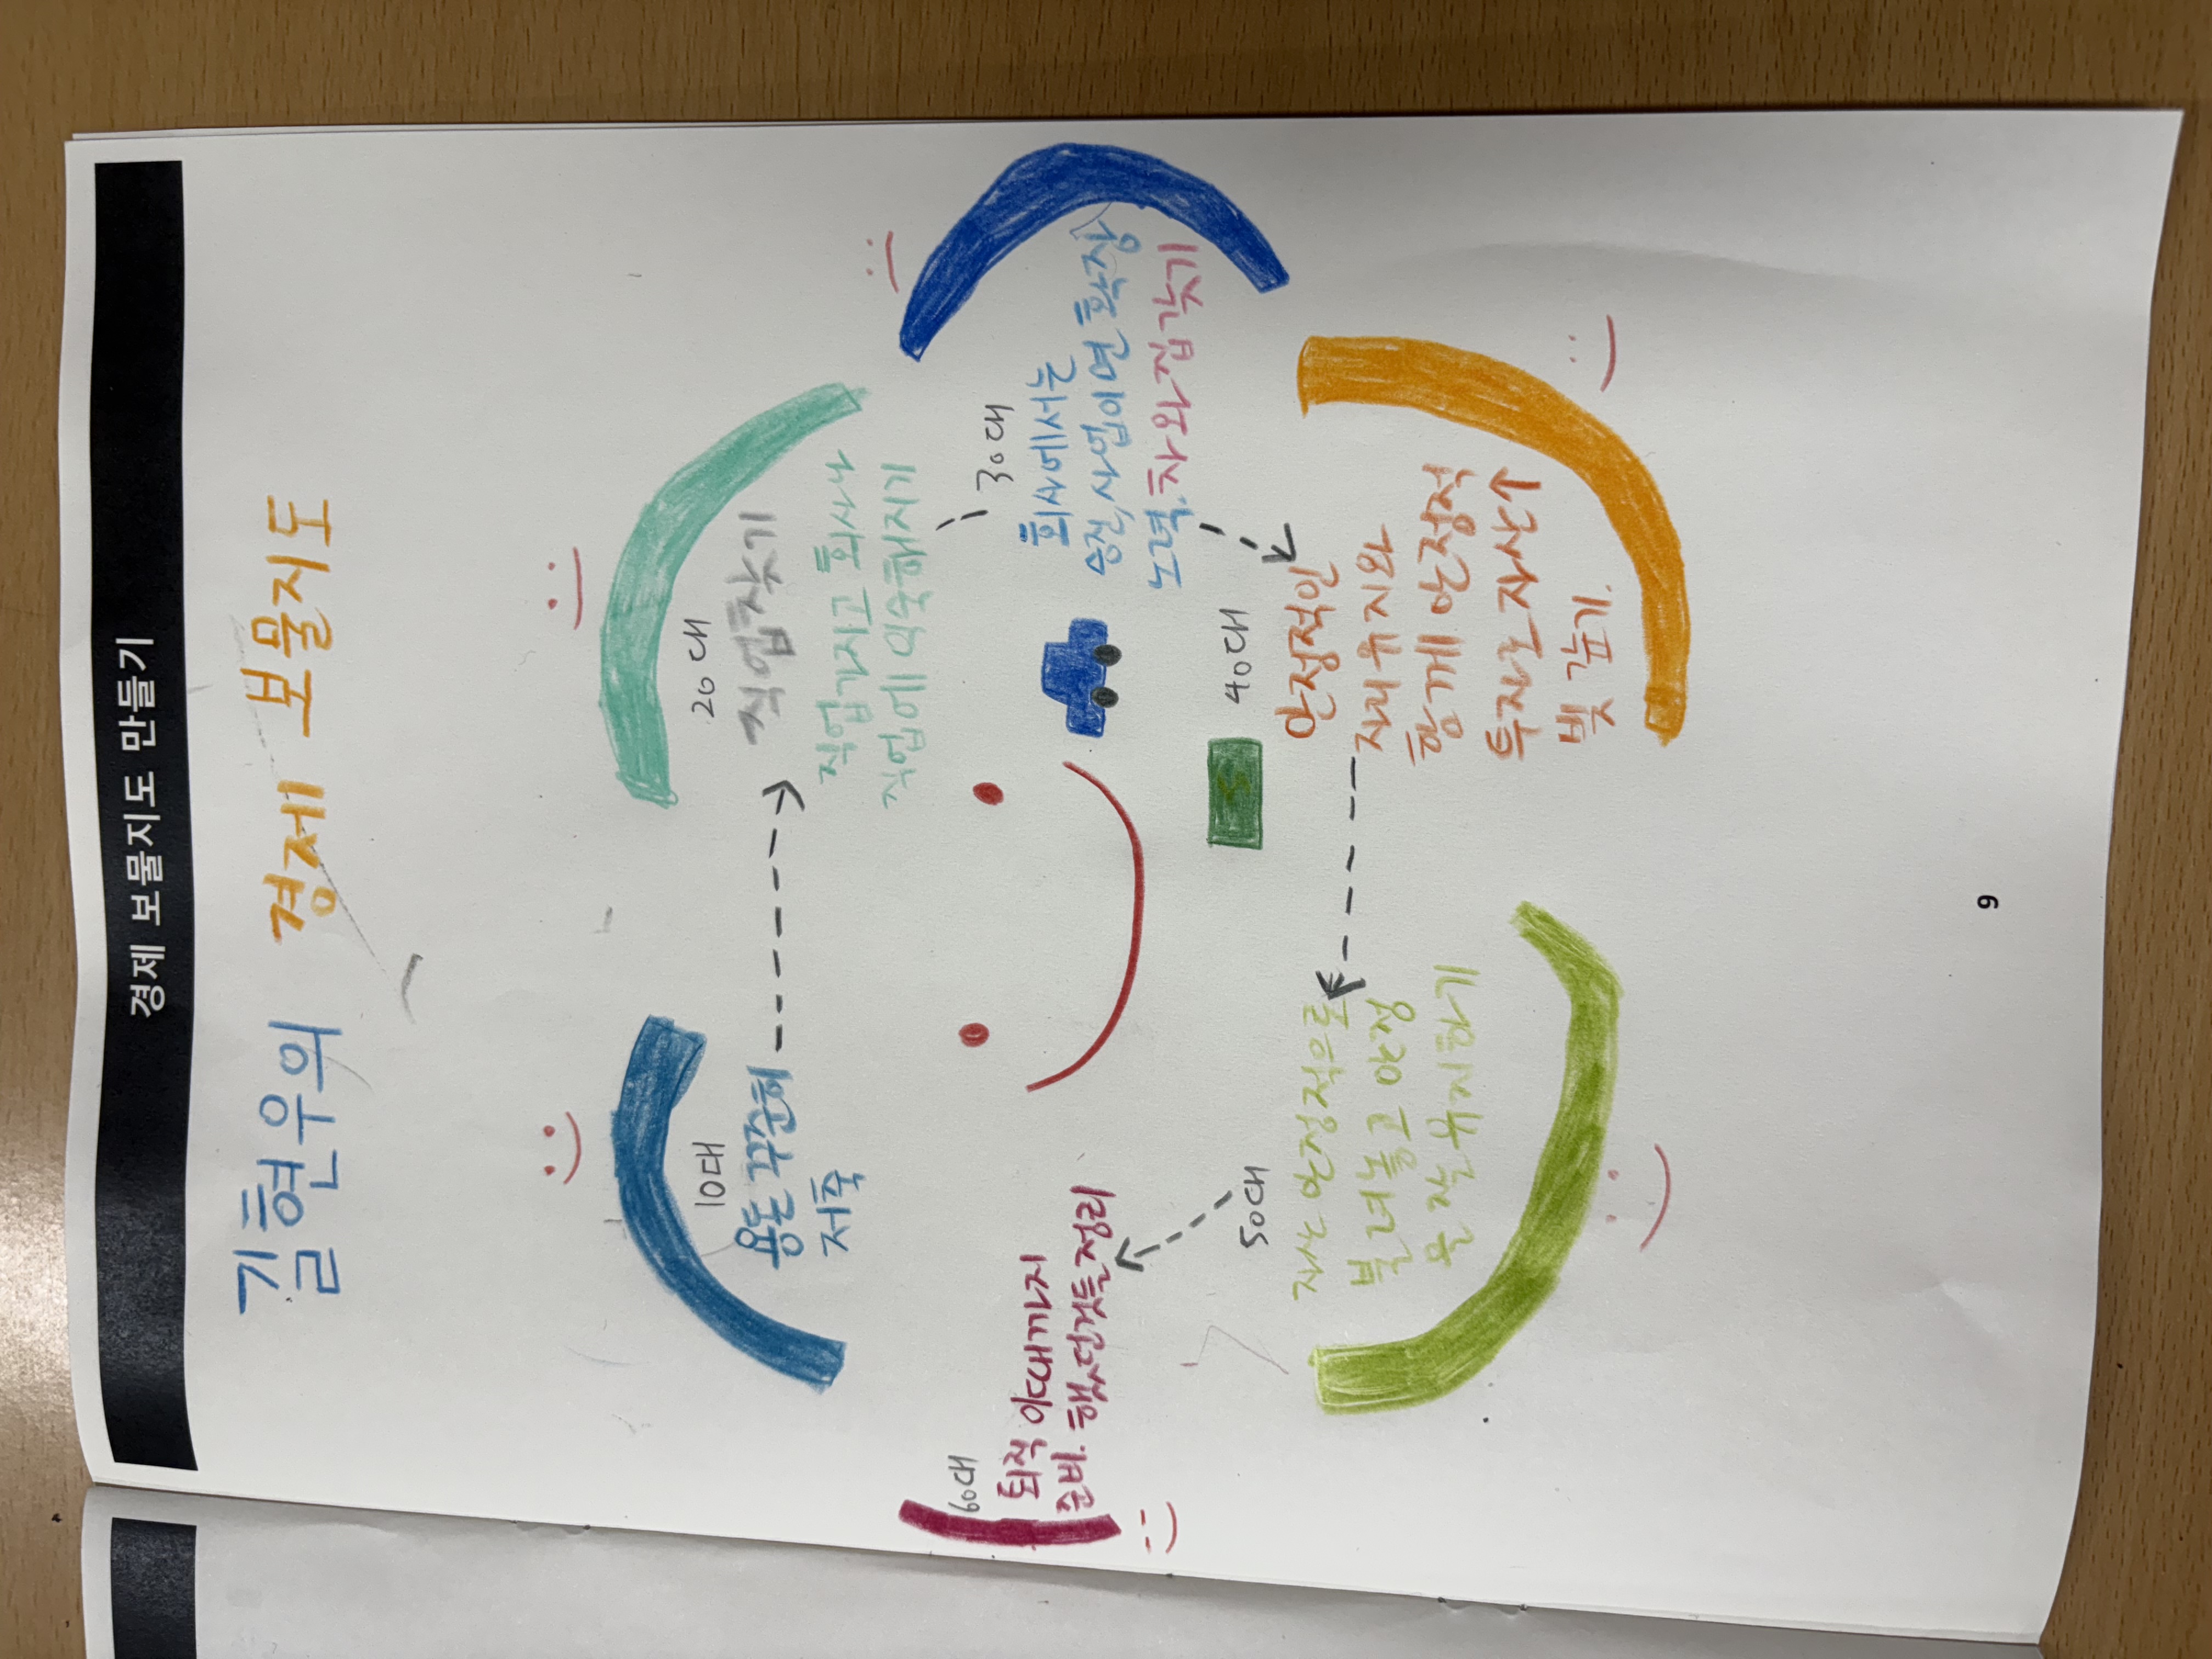 경제 보물지도 만들기
김현우의 경제 보물지도
10대
용돈 꾸준히
저축
20대
직업찾기
직업가지고 회사나
직업에 익숙해지기
30대
회사에서는
승진, 사업이면 확장
노력. 차와 집 갖기
40대
안정적인
자리 유지와
함께 안정적
투자로 자산↑
빚 갚기.
50대
자산 안정적으로
불려놓고 안정
을 잘 유지하기
60대
퇴직 이때까지
준비. 했던것들 정리
9